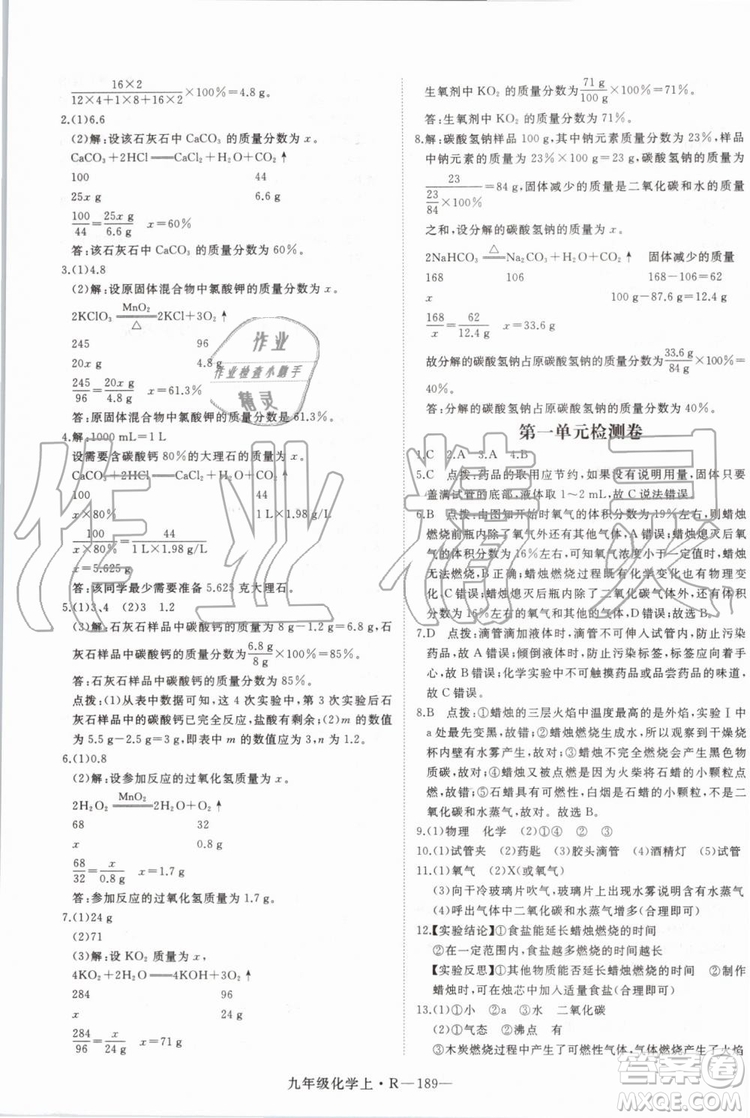 16×2
12×4+1×8+16×2 ×100%=4.8 g。
2.(1)6.6
(2)解：设该石灰石中 CaCO₃ 的质量分数为 x。
CaCO₃+2HCl══CaCl₂+H₂O+CO₂↑
100 44
25x g 6.6 g
100/44=25x g/6.6 g x=60%
答：该石灰石中 CaCO₃ 的质量分数为 60%。
3.(1)4.8
(2)解：设原固体混合物中氯酸钾的质量分数为 x。
2KClO₃ MnO₂══△ 2KCl+3O₂↑
245 96
20x g 4.8 g
245/96=20x g/4.8 g x=61.3%
答：原固体混合物中氯酸钾的质量分数是 61.3%。
4.解：1000 mL=1 L
设需要含碳酸钙 80%的大理石的质量为 x。
CaCO₃+2HCl══CaCl₂+H₂O+CO₂↑
100 44
x×80% 1 L×1.98 g/L
100/x×80%=44/1 L×1.98 g/L
x=5.625 g
答：该同学最少需要准备 5.625 克大理石。
5.(1)3、4 (2)3 1.2
(3)解：石灰石样品中碳酸钙的质量为 8 g-1.2 g=6.8 g，石
灰石样品中碳酸钙的质量分数 6.8 g/8 g×100%=85%。
答：石灰石样品中碳酸钙的质量分数为 85%。
点拨：(1)从表中数据可知，这 4 次实验中，第 3 次实验石
灰石样品中的碳酸钙已完全反应，盐酸有剩余；(2)m 的数值
为 5.5 g-2 g=3.5 g，即表中 m 的数值为 1.2。
6.(1)0.8
(2)解：设参加反应的过氧化氢质量为 x。
2H₂O₂ MnO₂══ 2H₂O+O₂↑
68 32
x 0.8 g
68/32=x/0.8 g
答：参加反应的过氧化氢质量为
7.(1)24 g
(2)71
(3)解：设生氧剂中 KO₂ 的质量为 x。
4KO₂+2H₂O══4KOH+3O₂↑
284 96
x 24 g
284/96=x/24 g x=71 g
生氧剂中 KO₂ 的质量分数为 71 g/100 g×100%=71%。
答：生氧剂中 KO₂ 的质量分数为 71%。
8.解：碳酸氢钠样品 100 g，其中钠元素的质量分数 23%，样
品中钠元素的质量=100 g×23%=23 g，碳酸氢钠的质量=
23/(23/84)=84 g，固体减少的质量是二氧化碳和水的质量
之和，设分解的碳酸氢钠的质量为 x。
2NaHCO₃ △══ Na₂CO₃+H₂O+CO₂↑ 固体减少的质量
168 168-106=62
x 100 g-87.6 g=12.4 g
168/x=62/12.4 g x=33.6 g
故分解的碳酸氢钠占原碳酸氢钠质量分数=33.6 g/84 g×100%=
40%。
答：分解的碳酸氢钠占原碳酸氢钠的质量分数为 40%。
第一单元检测卷
1.C 2.A 3.A 4.B
5.C 点拨：药品的取用应节约，如果没有说明用量，固体只要
盖满试管的底部，液体取 1～2 mL，故 C 说法错误。
6.B 点拨：由图知开始时氧气的体积分数为 19%左右，则蜡烛
燃烧前瓶内除了氧气外还有其他气体，A 错误；蜡烛熄灭后氧
气的体积分数为 16%左右，可知氧气体积分数小于 16%时，蜡
烛无法燃烧，B 正确；蜡烛燃烧过程中既有化学变化又有物理
变化，C 错误；蜡烛熄灭后瓶中除了二氧化碳气体外，还有水蒸
气和其他气体，D 错误。
7.D 点拨：滴管滴加液体时，滴管不可伸入试管内，防止污染
药品，故错误；倾倒液体时，标签向着手心，防止污染标签，
故错误；化学实验中不可触摸药品或尝药品的味道，
故错误。
8.B 点拨：①蜡烛的三层火焰中温度最高的是外焰，实验Ⅰ中
a 处最先变黑，故错；②蜡烛燃烧生成水，所以观察到干燥烧
杯内壁有水雾产生，故对；③蜡烛燃烧过程中，既发生了化学
变化，又发生了物理变化，故错；④蜡烛燃烧产生了二氧化碳
和水，故错；⑤蜡烛熄灭时的白烟是石蜡的小颗粒，点
燃石蜡蒸气，蜡烛能复燃，白烟是石蜡的小颗粒，故对；⑥二
氧化碳和水蒸气，故对。故选 B。
9.(1)物理 化学 (2)①④ ② ③
10.(1)试管夹 (2)药匙 (3)胶头滴管 (4)酒精灯 (5)
11.(1)氧气 (2)X(或二氧化碳)
(3)向干冷玻璃片吹气，玻璃片上出现水雾说明呼出
(4)呼出气体中二氧化碳和水蒸气增多了
12.【实验结论】①食盐能延长蜡烛燃烧的时间
②在一定范围内，食盐越多燃烧的时间越长
【实验反思】①影响蜡烛燃烧时间的因素有很多
②制作蜡烛时，可在烛芯中加入适量食盐(合理即可)
13.(1)①小 ②a ③水 二氧化碳
(2)①气态 ②沸点 有
③木炭燃烧没有产生气体，蜡烛燃烧气体产生了火焰
九年级化学上·R—189—
作业
作业检查小助手
精灵
作业精灵
答案圈